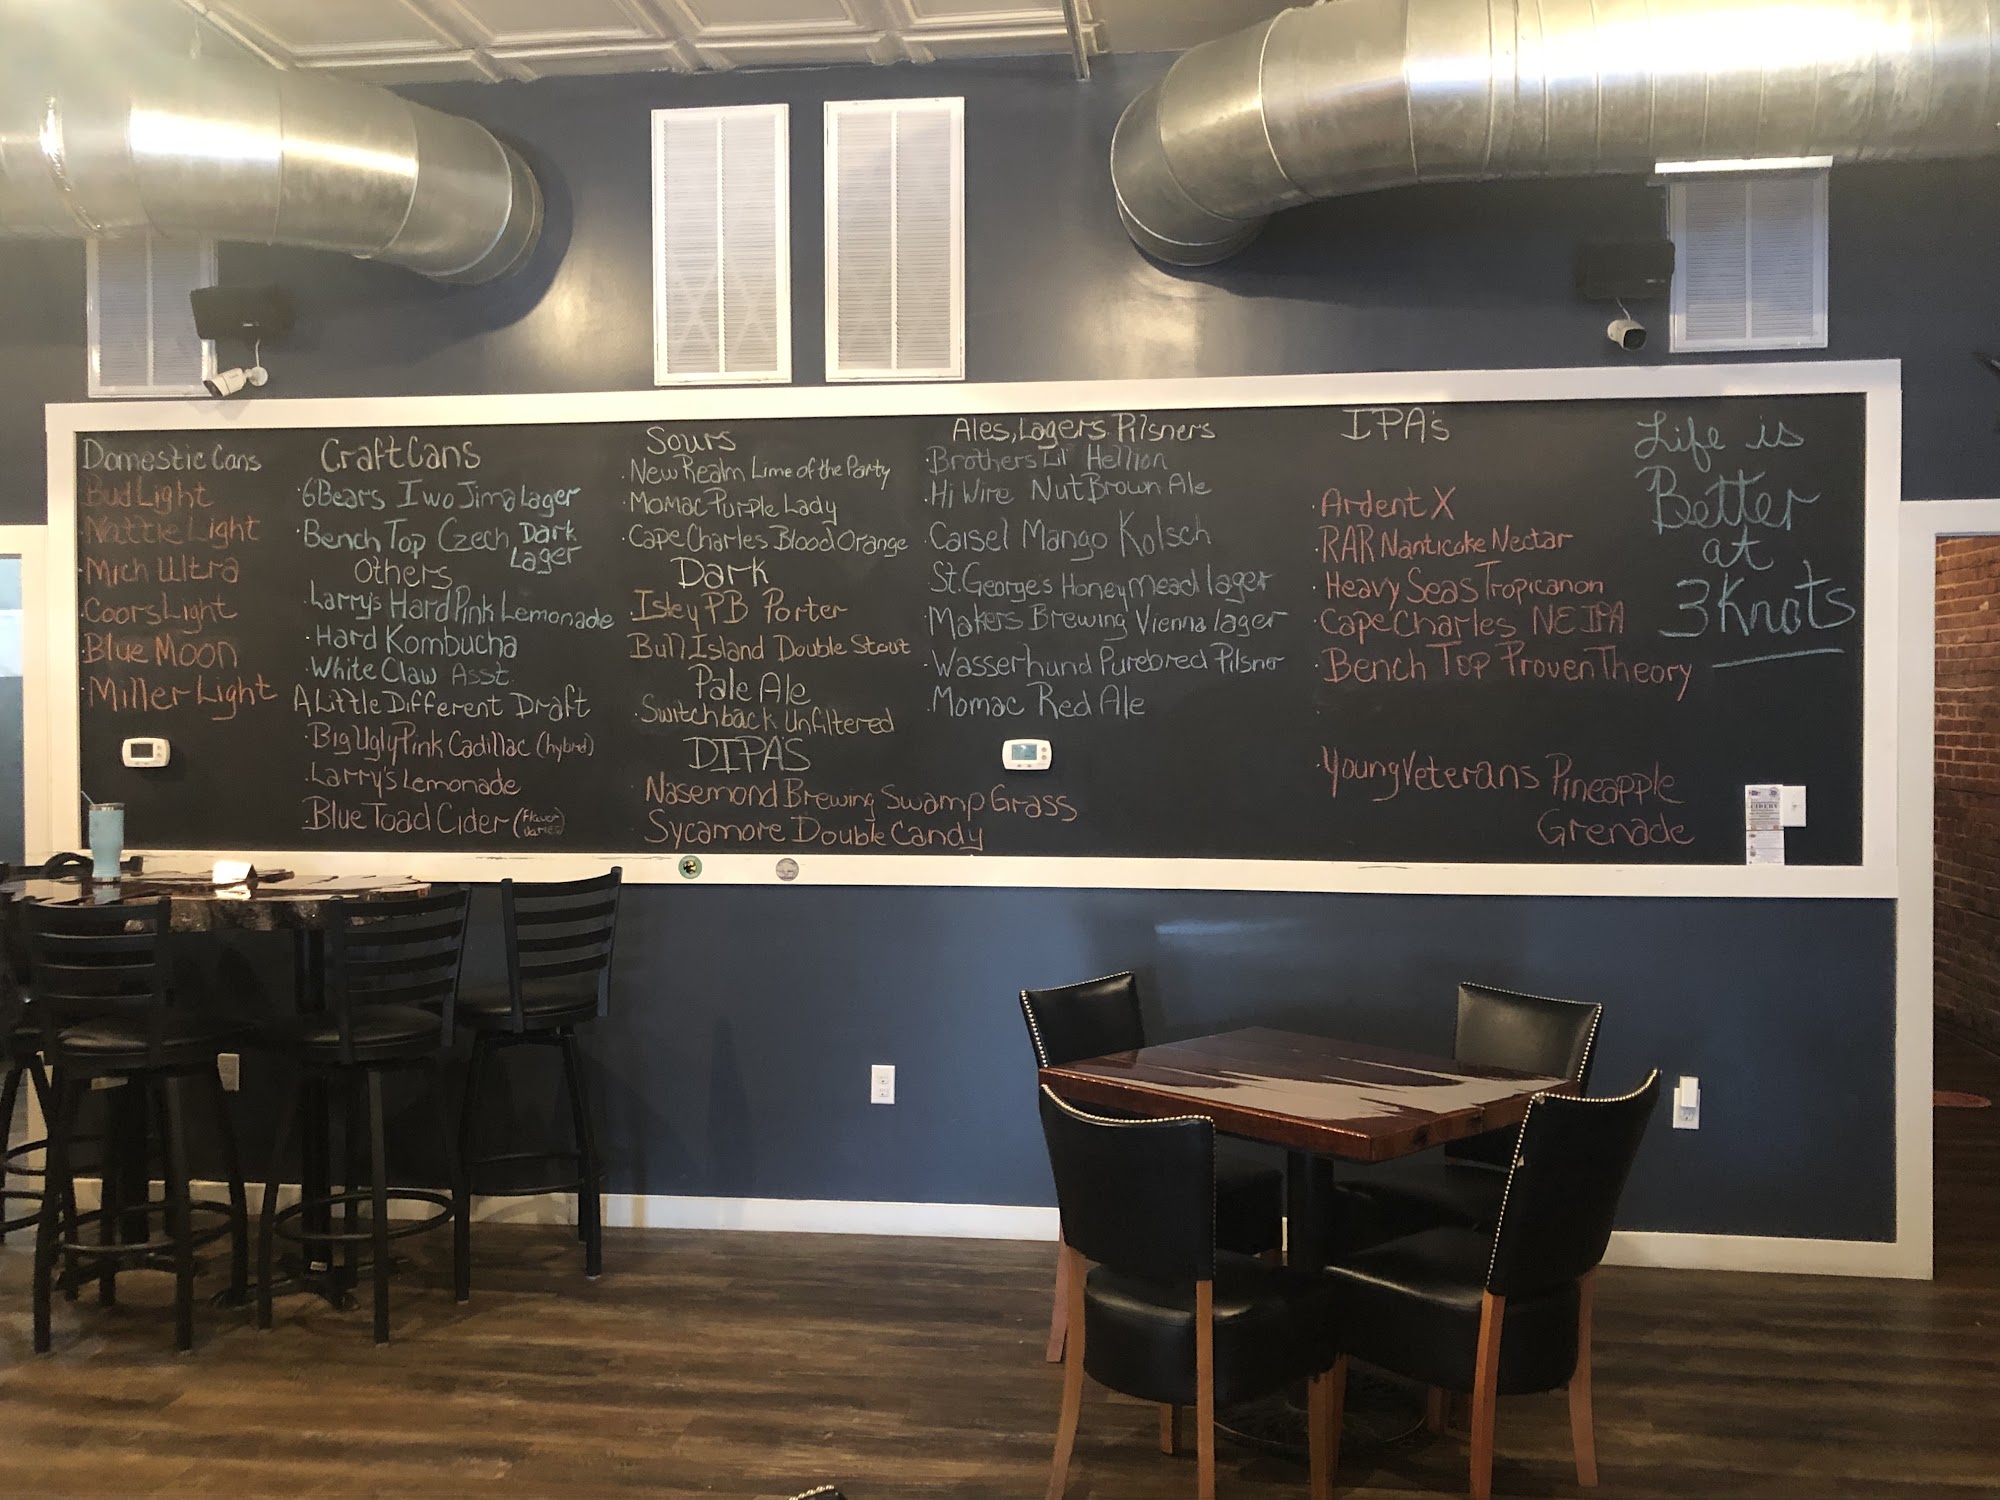 Domestic Cans
Bud Light
Nattie Light
Mich Ultra
Coors Light
Blue Moon
Miller Light
Craft Cans
· 6 Bears Iwo Jima Lager
· Bench Top Czech Dark
Lager
Others
· Larry's Hard Pink Lemonade
· Hard Kombucha
· White Claw Asst.
A Little Different Draft
· Big Ugly Pink Cadillac (hybrid)
· Larry's Lemonade
· Blue Toad Cider (Flavor
varies)
Sours
· New Realm Lime of the Party
· Momac Purple Lady
· Cape Charles Blood Orange
Dark
· Isley PB Porter
Bull Island Double Stout
Pale Ale
· Switchback Unfiltered
DIPA'S
· Nasemond Brewing Swamp Grass
· Sycamore Double Candy
Ales, Lagers, Pilsners
· Brothers Lil' Hellion
· Hi Wire Nut Brown Ale
· Caisel Mango Kolsch
· St. George's Honey Mead lager
· Makers Brewing Vienna lager
· Wasserhund Purebred Pilsner
· Momac Red Ale
IPA's
· Ardent X
· RAR Nanticoke Nectar
· Heavy Seas Tropicanon
· Cape Charles NE IPA
· Bench Top Proven Theory
· Young Veterans Pineapple
Grenade
Life is
Better
at
3 Knots